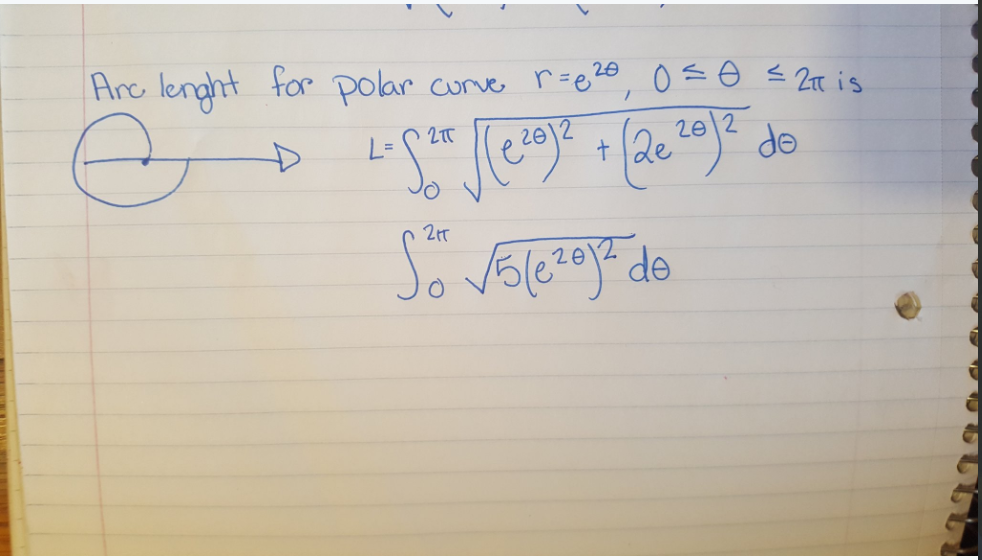 Arc lenght for polar curve r = e^{2θ}, 0 ≤ θ ≤ 2π is
L = ∫_0^{2π} √((e^{2θ})^2 + (2e^{2θ})^2) dθ
∫_0^{2π} √(5(e^{2θ})^2) dθ